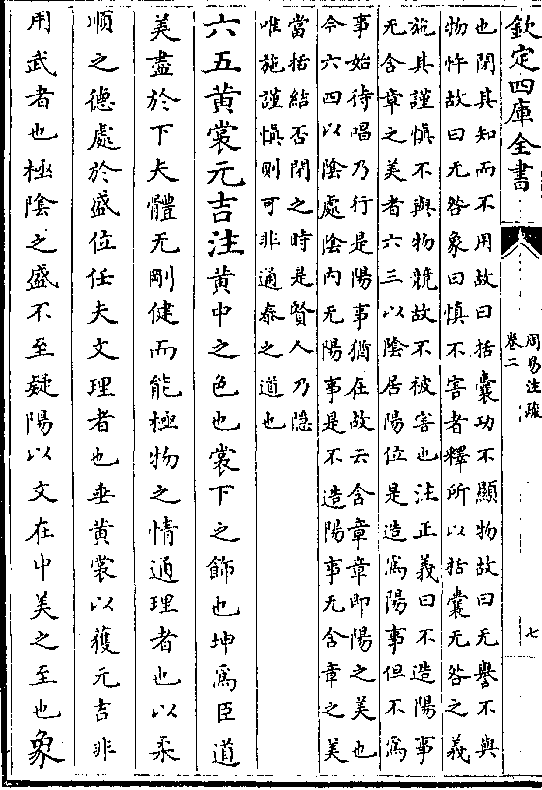 欽定四庫全書
周易注疏
卷二
七
也閉其知而不用故曰括囊功不顯物故曰无譽不與
物忤故曰无咎象曰慎不害者釋所以括囊无咎之義
施其謹慎不與物競故不被害也注正義曰不造陽事
无含章之美者六三以陰居陽位是造為陽事但不為
事始待唱乃行是陽事猶在故云含章章即陽之美也
今六四以陰處陰内无陽事是不造陽事无含章之美
當括結否閉之時是賢人乃隐
唯施謹慎則可非通泰之道也
六五黄裳元吉注黄中之色也裳下之飾也坤為臣道
美盡於下夫體无剛健而能極物之情通理者也以柔
順之德處於盛位任夫文理者也垂黄裳以獲元吉非
用武者也極陰之盛不至疑陽以文在中美之至也象